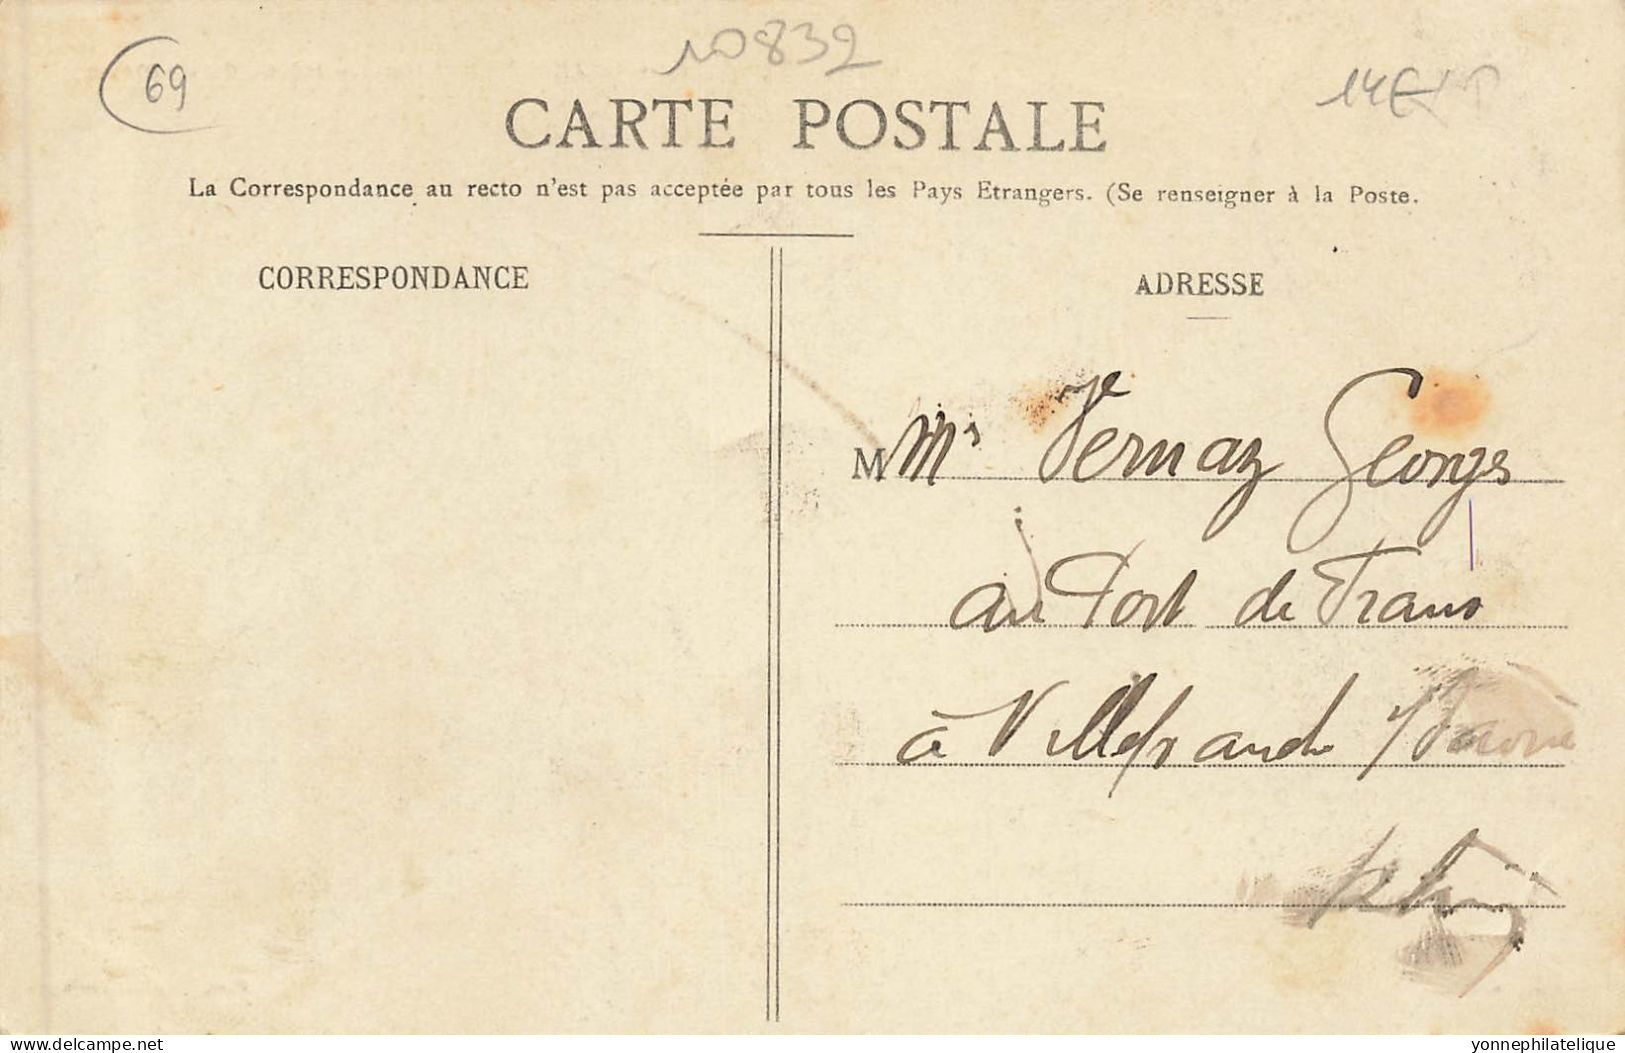 69
10832
14€
CARTE POSTALE
La Correspondance au recto n'est pas acceptée par tous les Pays Etrangers. (Se renseigner à la Poste.
CORRESPONDANCE
ADRESSE
M Mr Vernaz Georges
au Port de Frans
à Villefranche s/Saône
Rhône
delcampe.net
yonnephilatelique